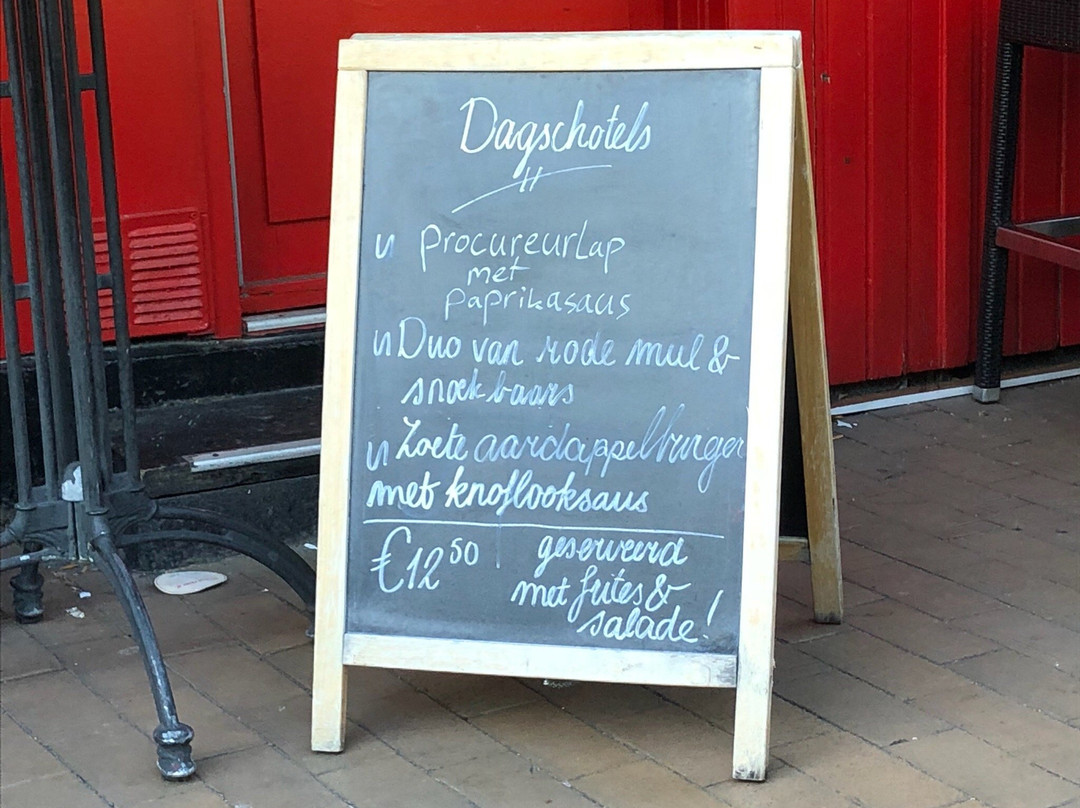 Dagschotels
procureurlap
met
paprikasaus
Duo van rode mul &
snoekbaars
Zoete aardappelburger
met knoflooksaus
€12,50 geserveerd
met frites &
salade!